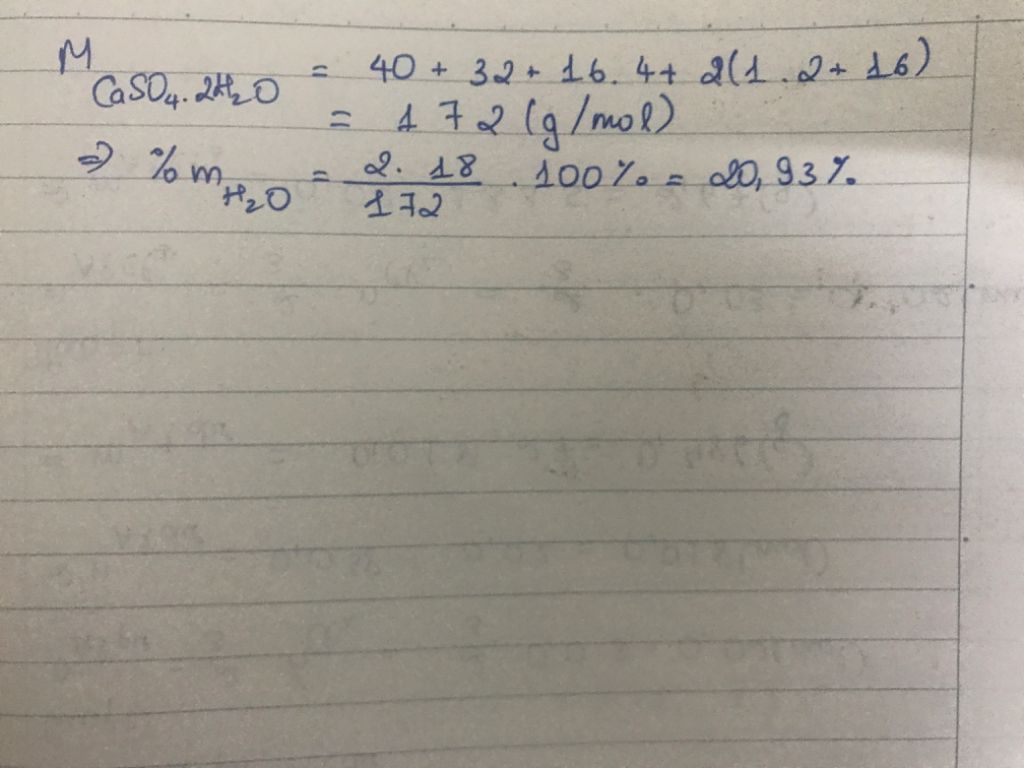 M CaSO₄.2H₂O = 40 + 32 + 16.4 + 2(1.2 + 16)
= 172 (g/mol)
⇒ %m H₂O = 2.18/172 . 100% = 20,93%